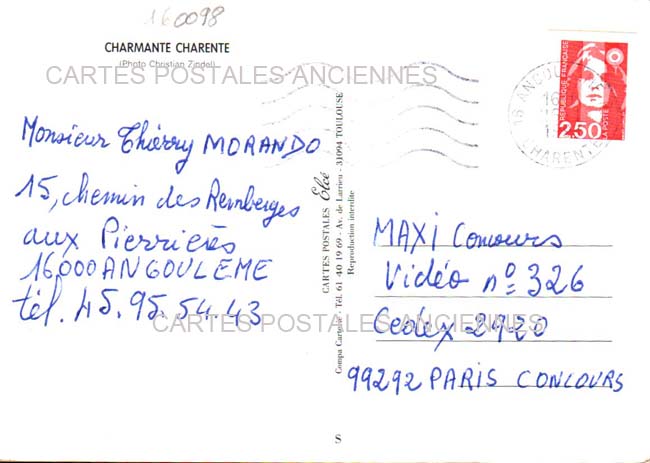 160098
CHARMANTE CHARENTE
(Photo Christian Zindel)
CARTES POSTALES ANCIENNES
Monsieur Thierry MORANDO
15, chemin des Remberges
aux Pierrières
16000 ANGOULEME
tél. 45.95.54.43
CARTES POSTALES ANCIENNES
Compa Carterie - Tél. 61 40 19 69 - Av. de Larrieu - 31094 TOULOUSE
CARTES POSTALES Elcé
Reproduction interdite
S
REPUBLIQUE FRANÇAISE
2,50
LA POSTE
16 ANGOU
16
CHARENTE
MAXI Concours
Vidéo n° 326
Cedex 2920
99292 PARIS CONCOURS